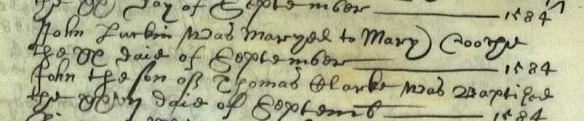 the xx day of September 1584
John Lurkin was maryed to Mary Coothe
the xx daie of September 1584
John the son of Thomas Clarke was Baptised
the daie of Septemb 1584